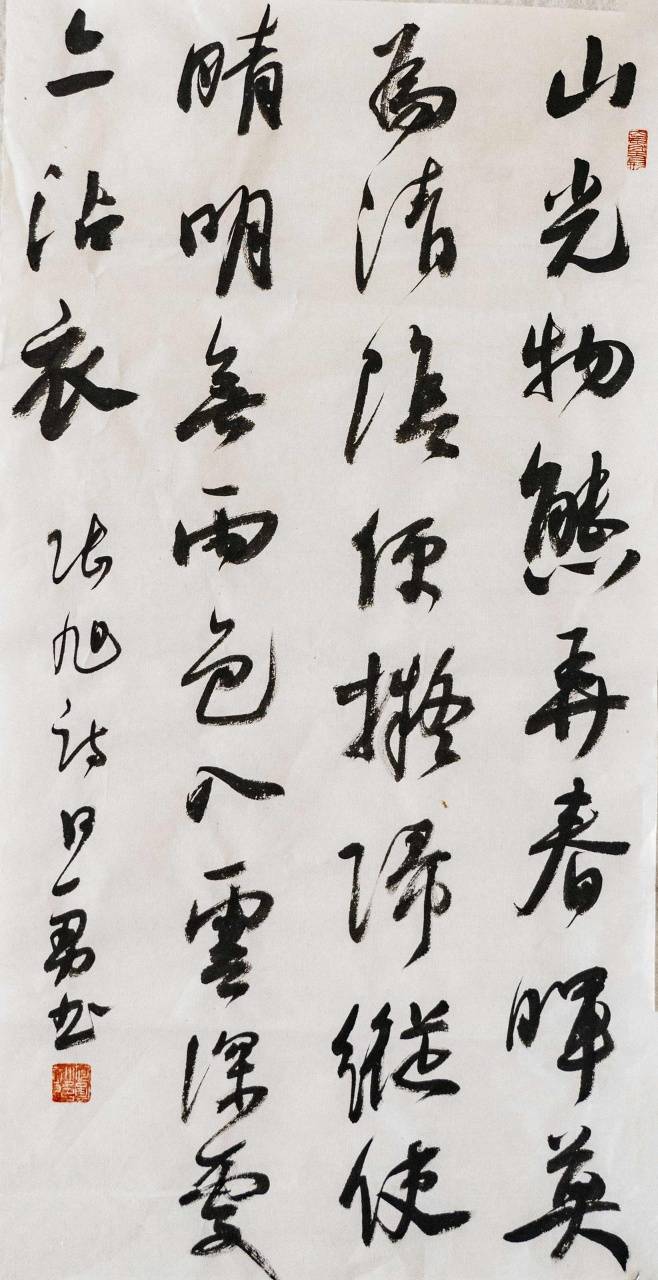 山光物態弄春暉莫
為清陰便擬歸縱使
晴明無雨色入雲深處
亦沾衣
張旭詩 勇书